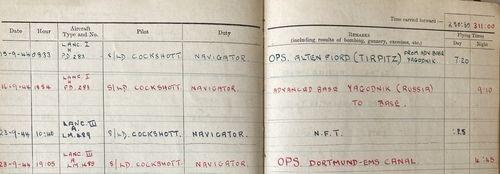 Time carried forward :— 250:50 211:00
Date Hour Aircraft Type and No. Pilot Duty REMARKS (including results of bombing, gunnery, exercises, etc.) Flying Times
Day Night
15-9-44 0833 LANC. I PD.283 S/LD. COCKSHOTT. NAVIGATOR. OPS. ALTEN FIORD (TIRPITZ) FROM ADV. BASE YAGODNIK 7:20
16-9-44 1854 LANC. I PD.283 S/LD. COCKSHOTT NAVIGATOR ADVANCED BASE YAGODNIK (RUSSIA) 9:10
TO BASE.
23-9-44 10:40 LANC. III A. LM.489 S/LD. COCKSHOTT. NAVIGATOR. N.F.T. :25
23-9-44 19:05 LANC. III A LM.489 S/LD. COCKSHOTT. NAVIGATOR. OPS. DORTMUND-EMS CANAL. :45